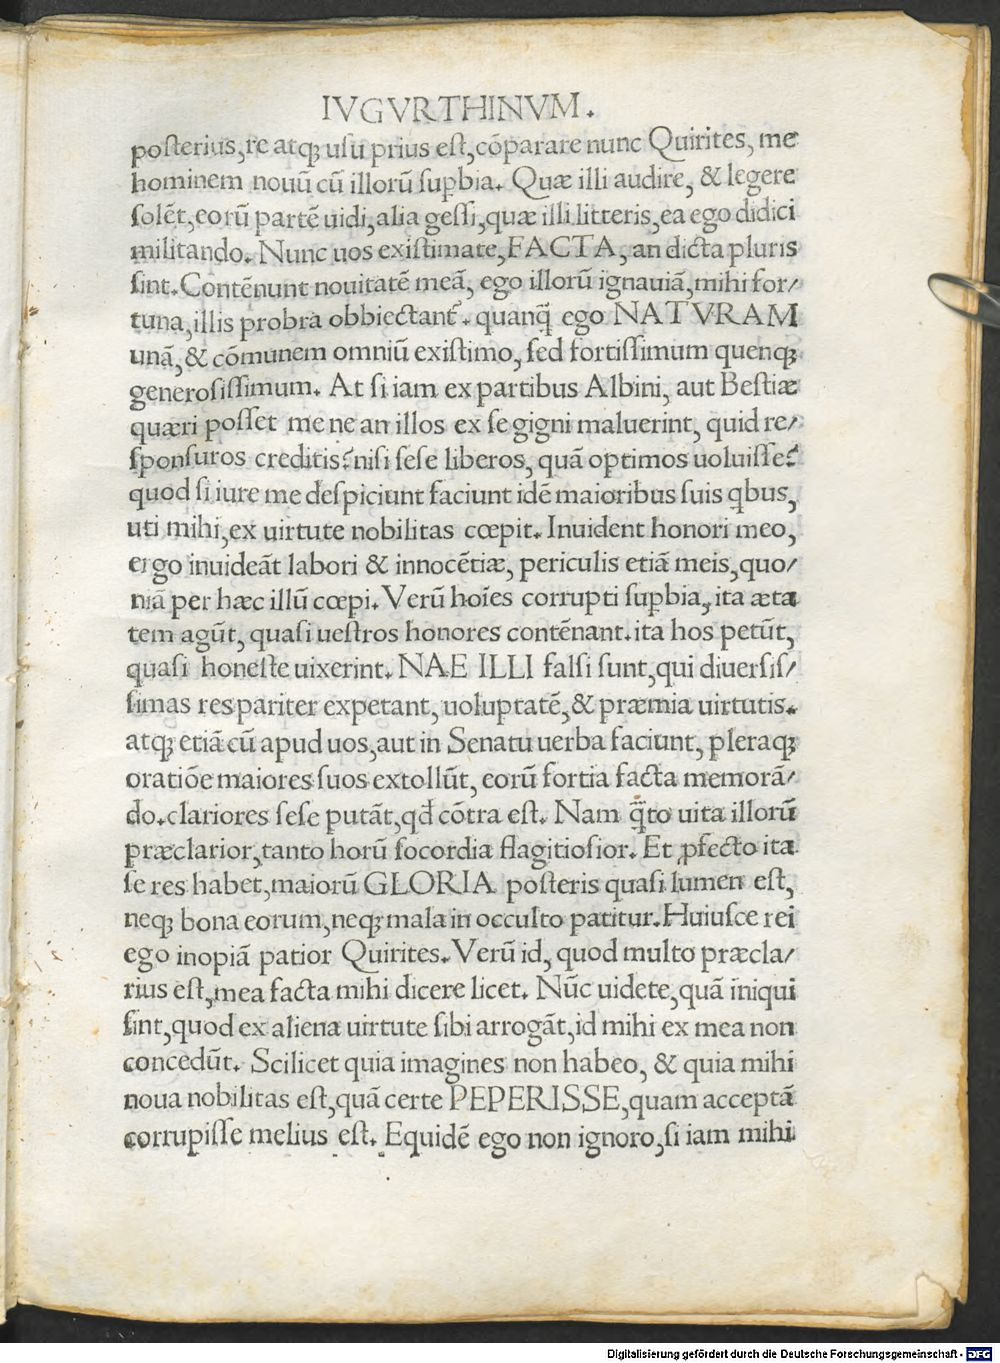 IVGVRTHINVM.
posterius, re atq; usu prius est, cōparare nunc Quirites, me
hominem nouū cū illorū supbia. Quæ illi audire, & legere
solēt, eorū partē uidi, alia gessi, quæ illi litteris, ea ego didici
militando. Nunc uos existimate, FACTA, an dicta pluris
sint. Contēnunt nouitatē meā, ego illorū ignauiā, mihi for/
tuna, illis probra obbiectant᷑. quanq̄ ego NATVRAM
unā, & cōmunem omniū existimo, sed fortissimum quenq;
generosissimum. At si iam ex partibus Albini, aut Bestiæ
quæri posset me ne an illos ex se gigni maluerint, quid re/
sponsuros creditis? nisi sese liberos, quā optimos uoluisse?
quod si iure me despiciunt faciunt idē maioribus suis qbus,
uti mihi, ex uirtute nobilitas cœpit. Inuident honori meo,
ergo inuideāt labori & innocētiæ, periculis etiā meis, quo/
niā per hæc illū cœpi. Verū hoīes corrupti supbia, ita æta
tem agūt, quasi uestros honores contēnant. ita hos petūt,
quasi honeste uixerint. NAE ILLI falsi sunt, qui diuersis/
simas res pariter expetant, uoluptatē, & præmia uirtutis.
atq; etiā cū apud uos, aut in Senatu uerba faciunt, pleraq;
oratiōe maiores suos extollūt, eorū fortia facta memorā/
do. clariores sese putāt, qd̄ cōtra est. Nam q̄to uita illorū
præclarior, tanto horū socordia flagitiosior. Et ꝓfecto ita
se res habet, maiorū GLORIA posteris quasi lumen est,
neq; bona eorum, neq; mala in occulto patitur. Huiusce rei
ego inopiā patior Quirites. Verū id, quod multo præcla/
rius est, mea facta mihi dicere licet. Nūc uidete, quā iniqui
sint, quod ex aliena uirtute sibi arrogāt, id mihi ex mea non
concedūt. Scilicet quia imagines non habeo, & quia mihi
noua nobilitas est, quā certe PEPERISSE, quam acceptā
corrupisse melius est. Equidē ego non ignoro, si iam mihi
Digitalisierung gefördert durch die Deutsche Forschungsgemeinschaft - DFG